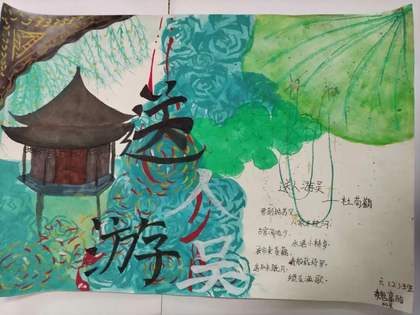 送人游吴
送人游吴
——杜荀鹤
君到姑苏见,
人家尽枕河。
古宫闲地少,
水港小桥多。
夜市卖菱藕,
春船载绮罗。
遥知未眠月,
乡思在渔歌。
六(2)班